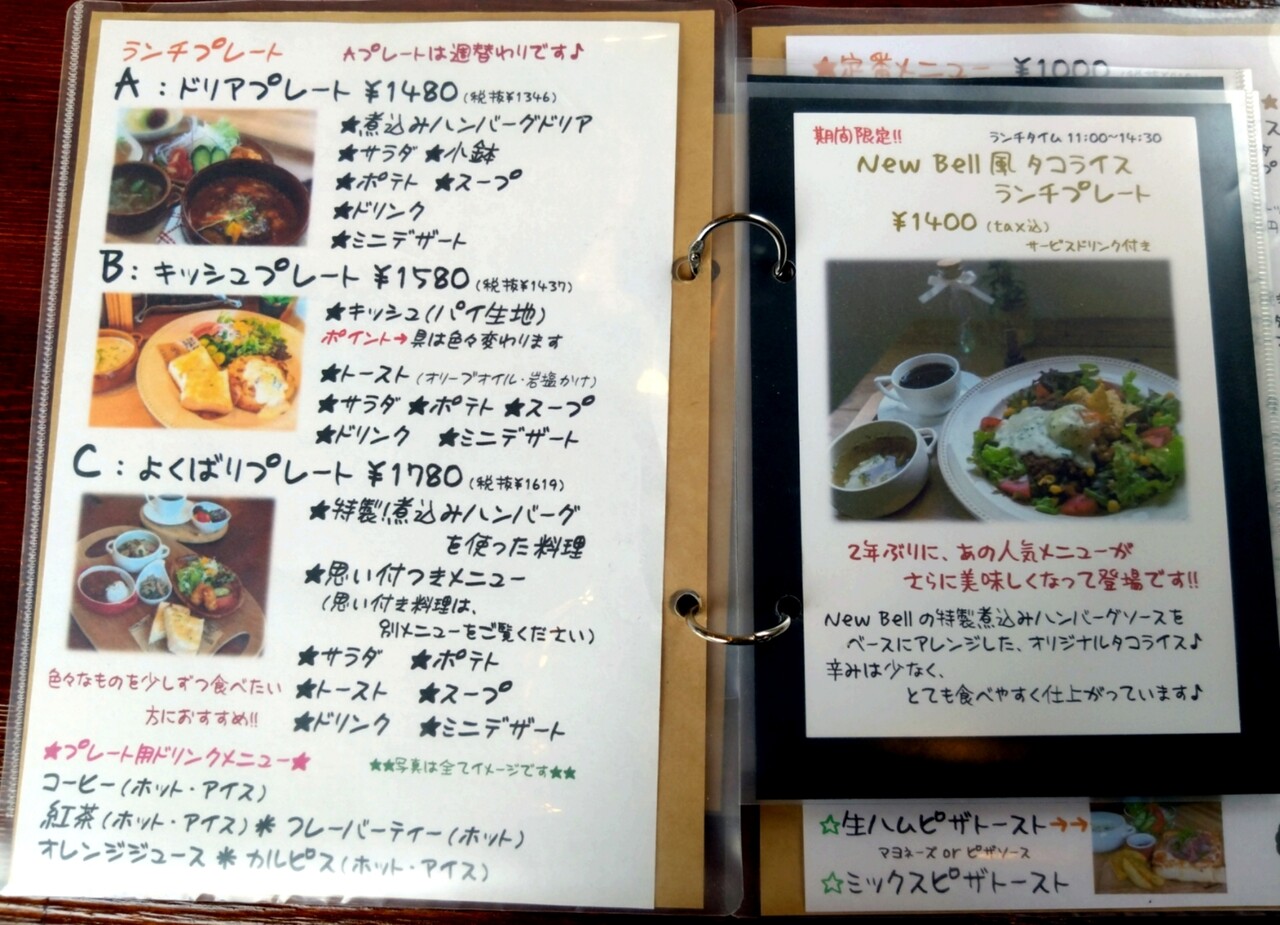 ランチプレート Aプレートは週替わりです♪
A：ドリアプレート ¥1480(税抜¥1346)
★煮込みハンバーグドリア
★サラダ ★小鉢
★ポテト ★スープ
★ドリンク
★ミニデザート
B：キッシュプレート ¥1580(税抜¥1437)
★キッシュ(パイ生地)
ポイント→具は色々変わります
★トースト(オリーブオイル・岩塩かけ)
★サラダ ★ポテト ★スープ
★ドリンク ★ミニデザート
C：よくばりプレート ¥1780(税抜¥1619)
★特製!煮込みハンバーグ
を使った料理
★思い付つきメニュー
(思い付き料理は、
別メニューをご覧ください)
★サラダ ★ポテト
★トースト ★スープ
★ドリンク ★ミニデザート
色々なものを少しずつ食べたい
方におすすめ!!
★プレート用ドリンクメニュー★
★★写真は全てイメージです★★
コーヒー(ホット・アイス)
紅茶(ホット・アイス)＊フレーバーティー(ホット)
オレンジジュース＊カルピス(ホット・アイス)
★定番メニュー ¥1000
期間限定!! ランチタイム 11:00~14:30
New Bell風 タコライス
ランチプレート
¥1400(tax込)
サービスドリンク付き
2年ぶりに、あの人気メニューが
さらに美味しくなって登場です!!
New Bellの特製煮込みハンバーグソースを
ベースにアレンジした、オリジナルタコライス♪
辛みは少なく、
とても食べやすく仕上がっています♪
☆生ハムピザトースト→→
マヨネーズorピザソース
☆ミックスピザトースト